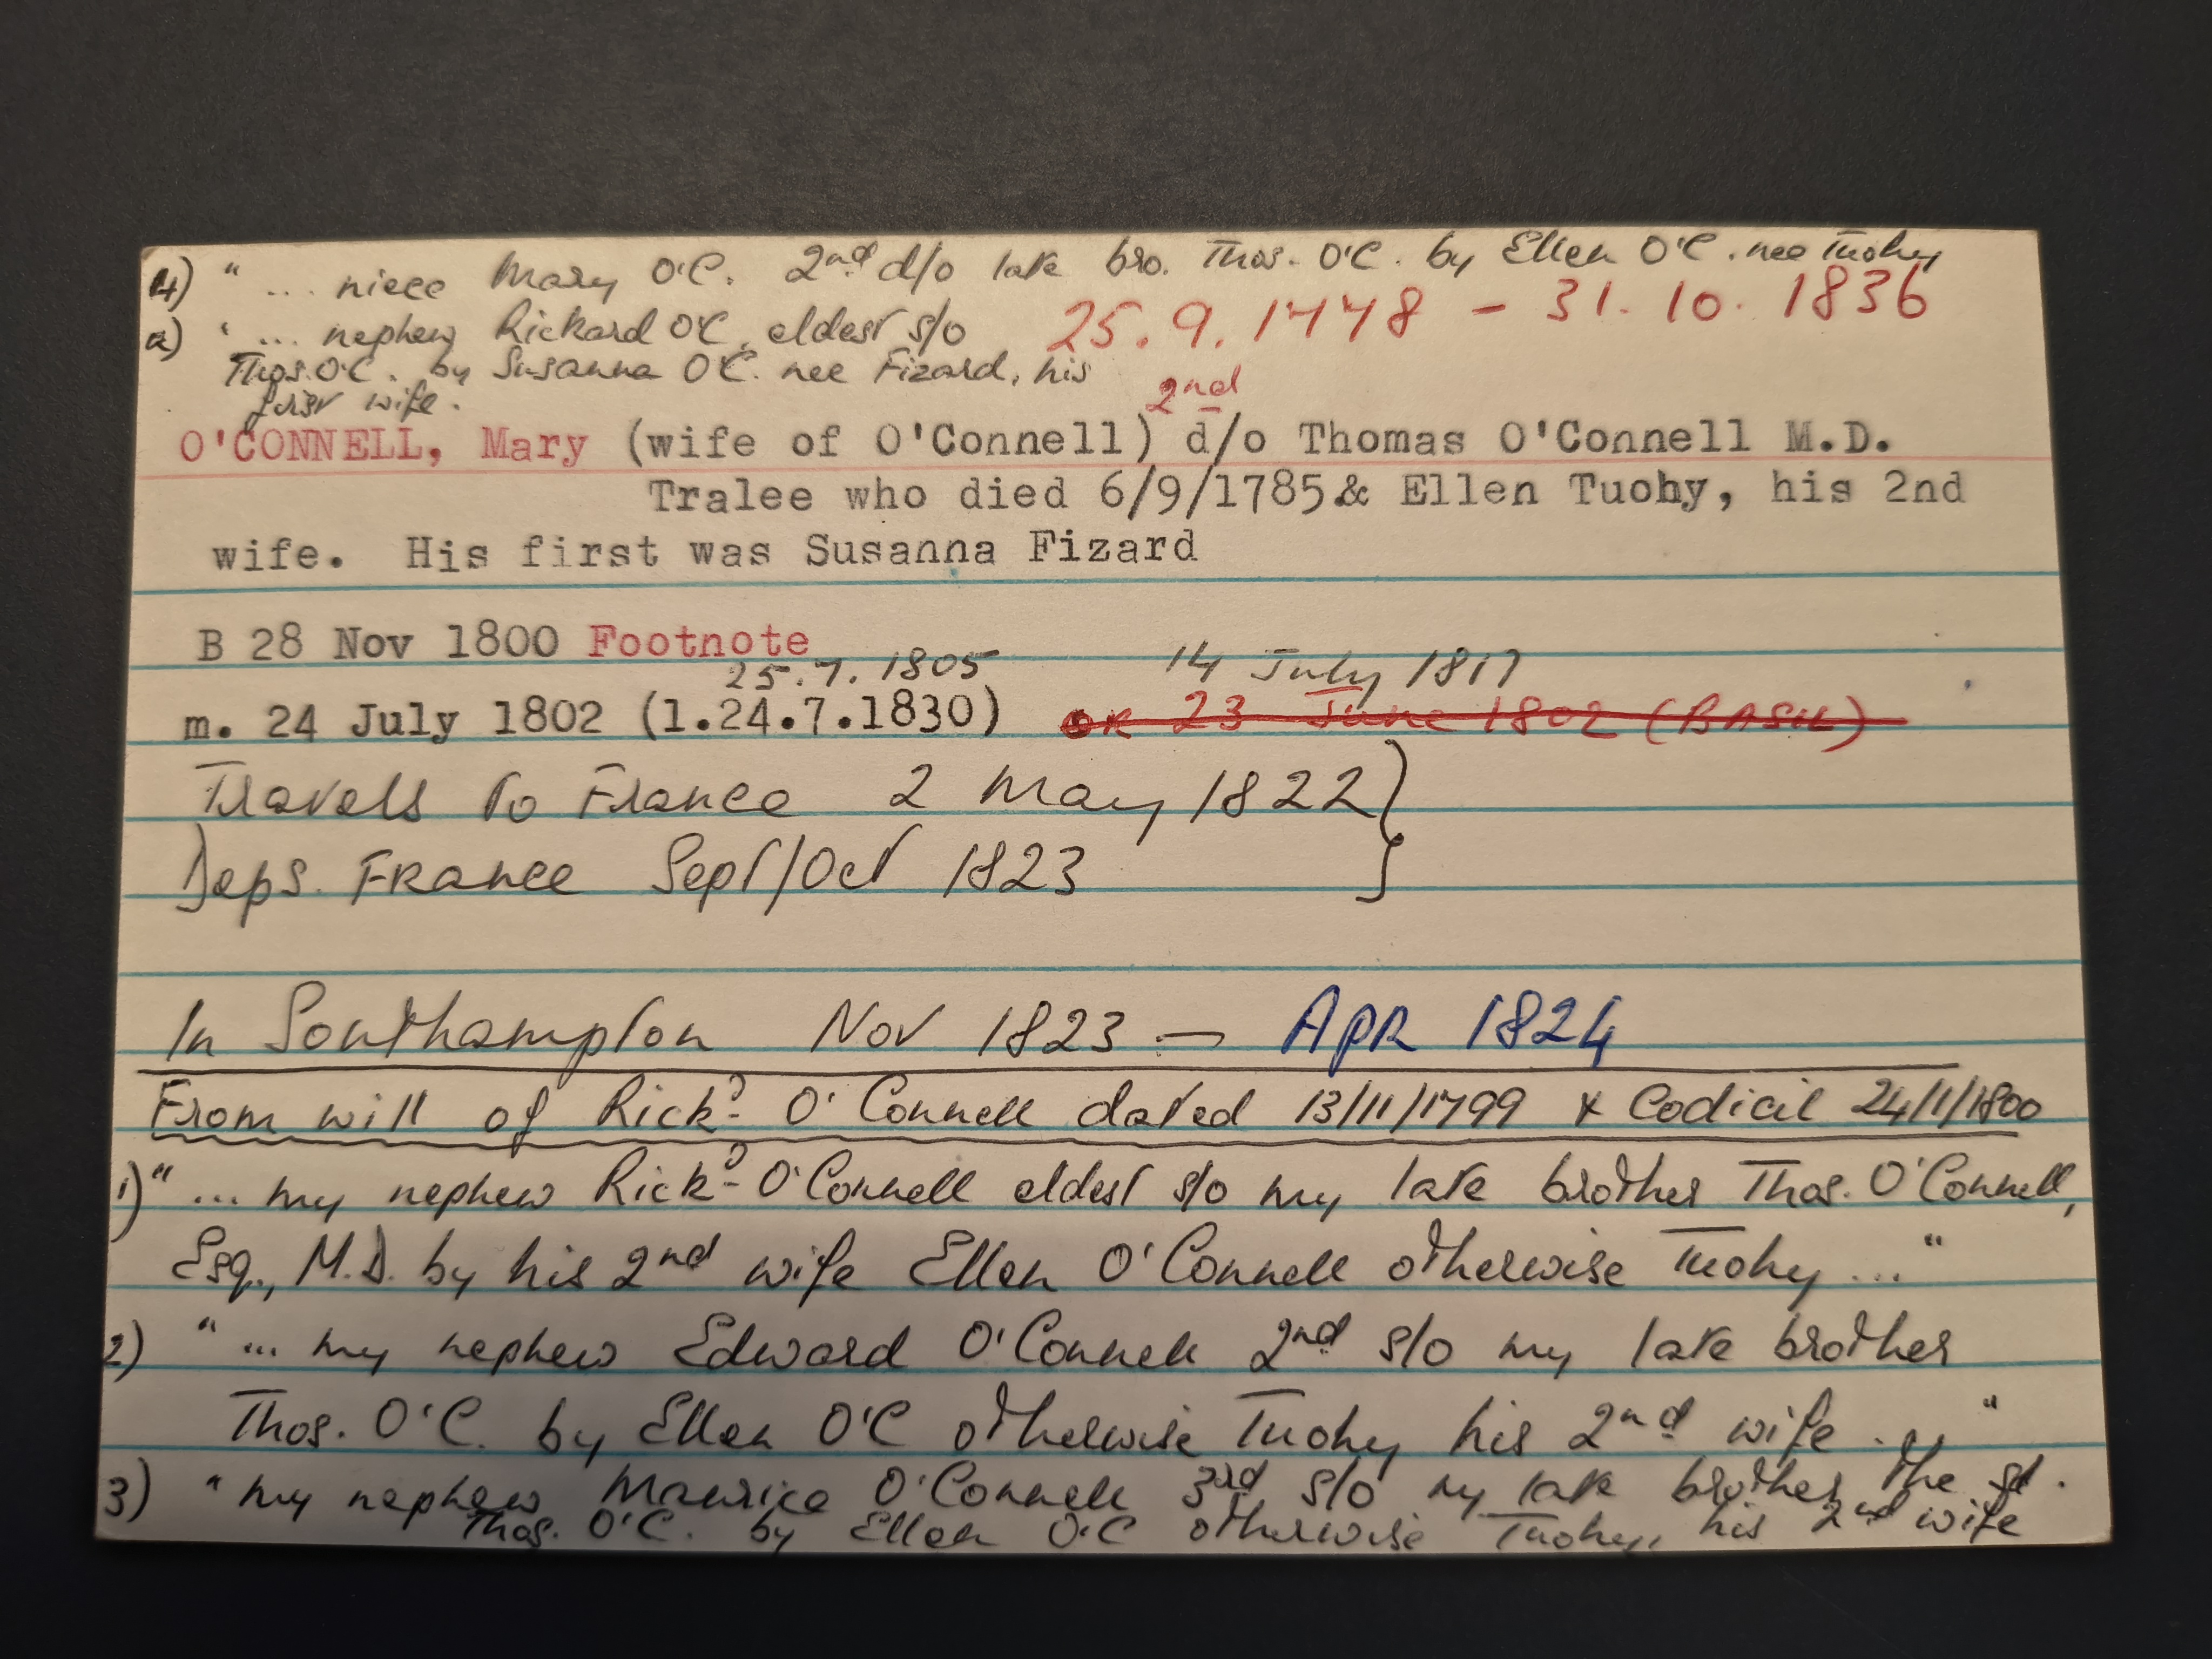 4) " ... niece Mary O'C. 2nd d/o late bro. Thos. O'C. by Ellen O'C. nee Tuohy
a) " ... nephew Rickard O'C, eldest s/o 25.9.1778 - 31.10.1836
Thos. O'C. by Susanna O'C. nee Fizard, his
first wife.
2nd
O'CONNELL, Mary (wife of O'Connell) d/o Thomas O'Connell M.D.
Tralee who died 6/9/1785 & Ellen Tuohy, his 2nd
wife. His first was Susanna Fizard
B 28 Nov 1800 Footnote
25.7.1805 14 July 1817
m. 24 July 1802 (1.24.7.1830) OR 23 June 1802 (BASIL)
Travels to France 2 May 1822 }
Deps. France Sept/Oct 1823
In Southampton Nov 1823 — APR 1824
From will of Rickd O'Connell dated 13/11/1799 & Codicil 24/1/1800
1) " ... my nephew Rickd O'Connell eldest s/o my late brother Thos. O'Connell,
Esq., M.D. by his 2nd wife Ellen O'Connell otherwise Tuohy ... "
2) " ... my nephew Edward O'Connell 2nd s/o my late brother
Thos. O'C. by Ellen O'C otherwise Tuohy his 2nd wife ... "
3) " my nephew Maurice O'Connell 3rd s/o my late brother the sd.
Thos. O'C. by Ellen O'C otherwise Tuohy, his 2nd wife